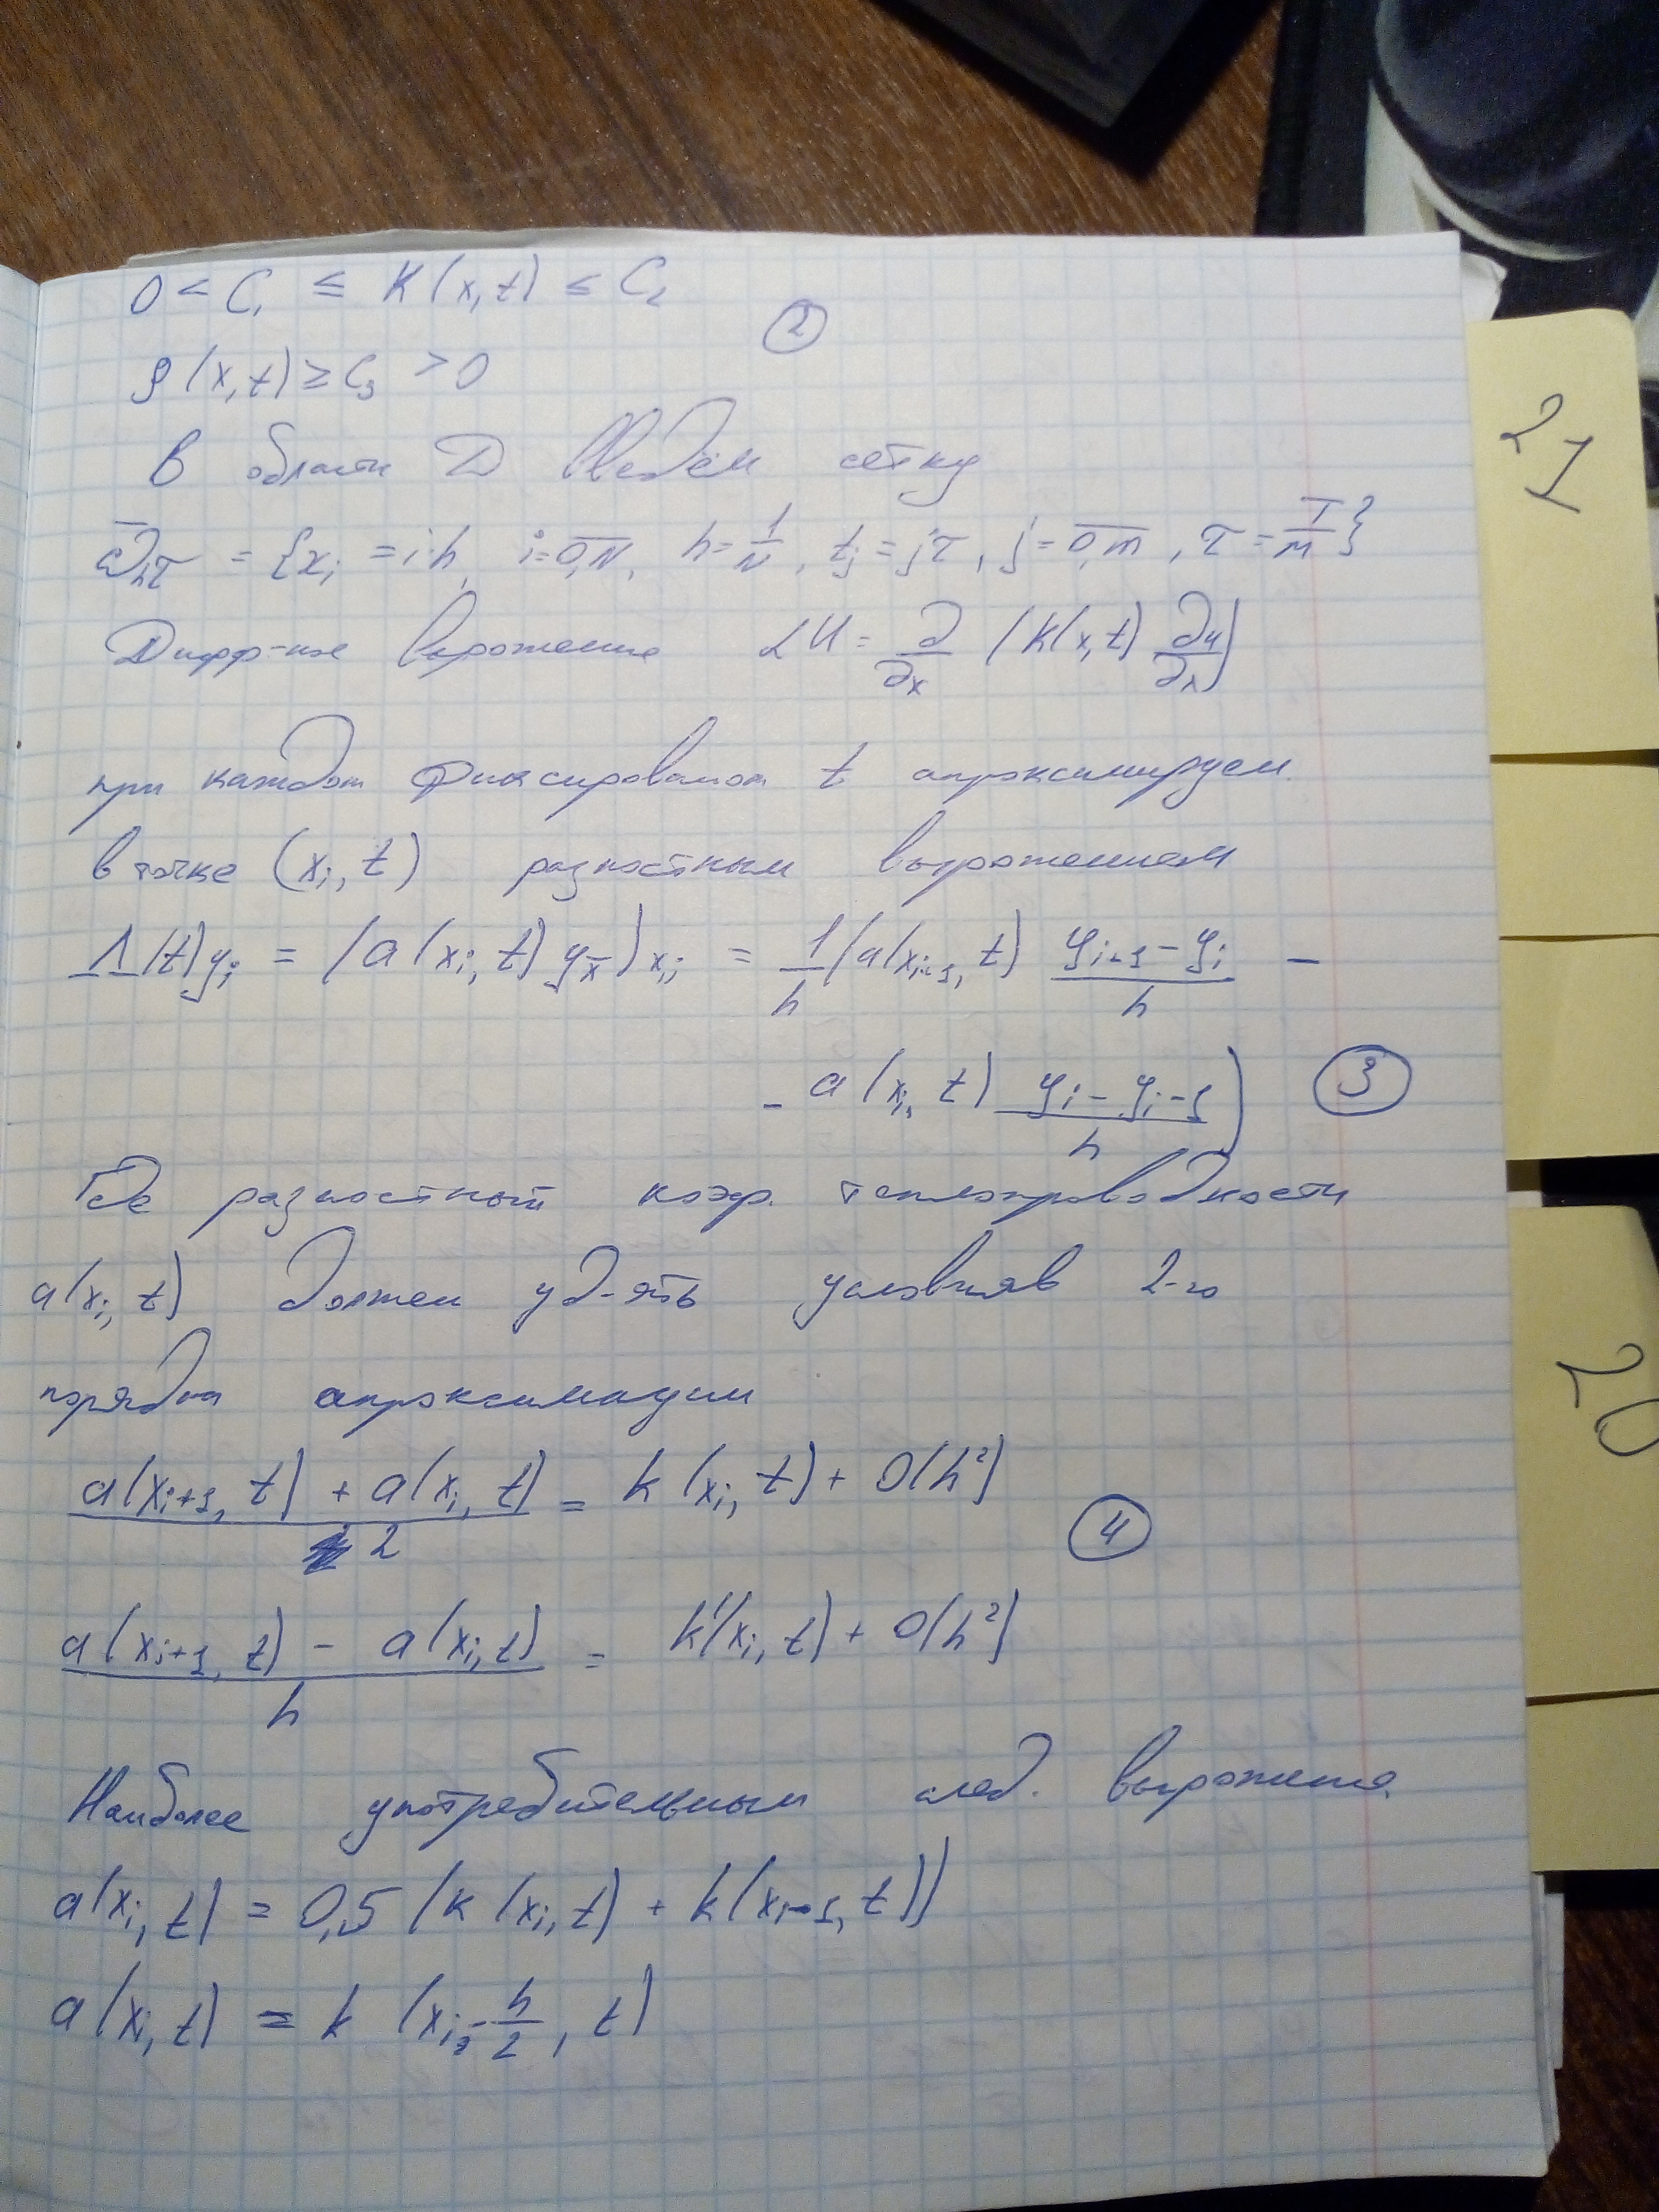 0 < C₁ ≤ K(x,t) ≤ C₂
②
ρ(x,t) ≥ C₃ > 0
В области D введём сетку
ω̄hτ = {xi = i·h, i=0,N̅, h=1/N, tj=jτ, j=0,m̅, τ=T/M}
Дифф-ное выражение LU = ∂/∂x (k(x,t) ∂u/∂x)
при каждом фиксированом t апроксимируем
в точке (xi, t) разностным выражением
Λ(t)yi = (a(xi, t) yx̄)x,i = 1/h (a(xi+1, t) (yi+1 - yi)/h -
- a(xi, t) (yi - yi-1)/h) ③
Где разностный коэф. теплопроводности
a(xi, t) должен уд-ять условияв 2-го
порядка апроксимации
(a(xi+1, t) + a(xi, t))/2 = k(xi, t) + O(h²)
④
(a(xi+1, t) - a(xi, t))/h = k'(xi, t) + O(h²)
Наиболее употребительным след. выражения
a(xi, t) = 0,5 (k(xi, t) + k(xi-1, t))
a(xi, t) = k (xi - h/2, t)
21
20